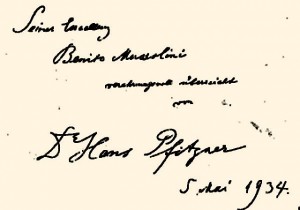 Seiner Excellenz
Benito Mussolini
verehrungsvoll überreicht
von
Dr Hans Pfitzner
5. Mai 1934.